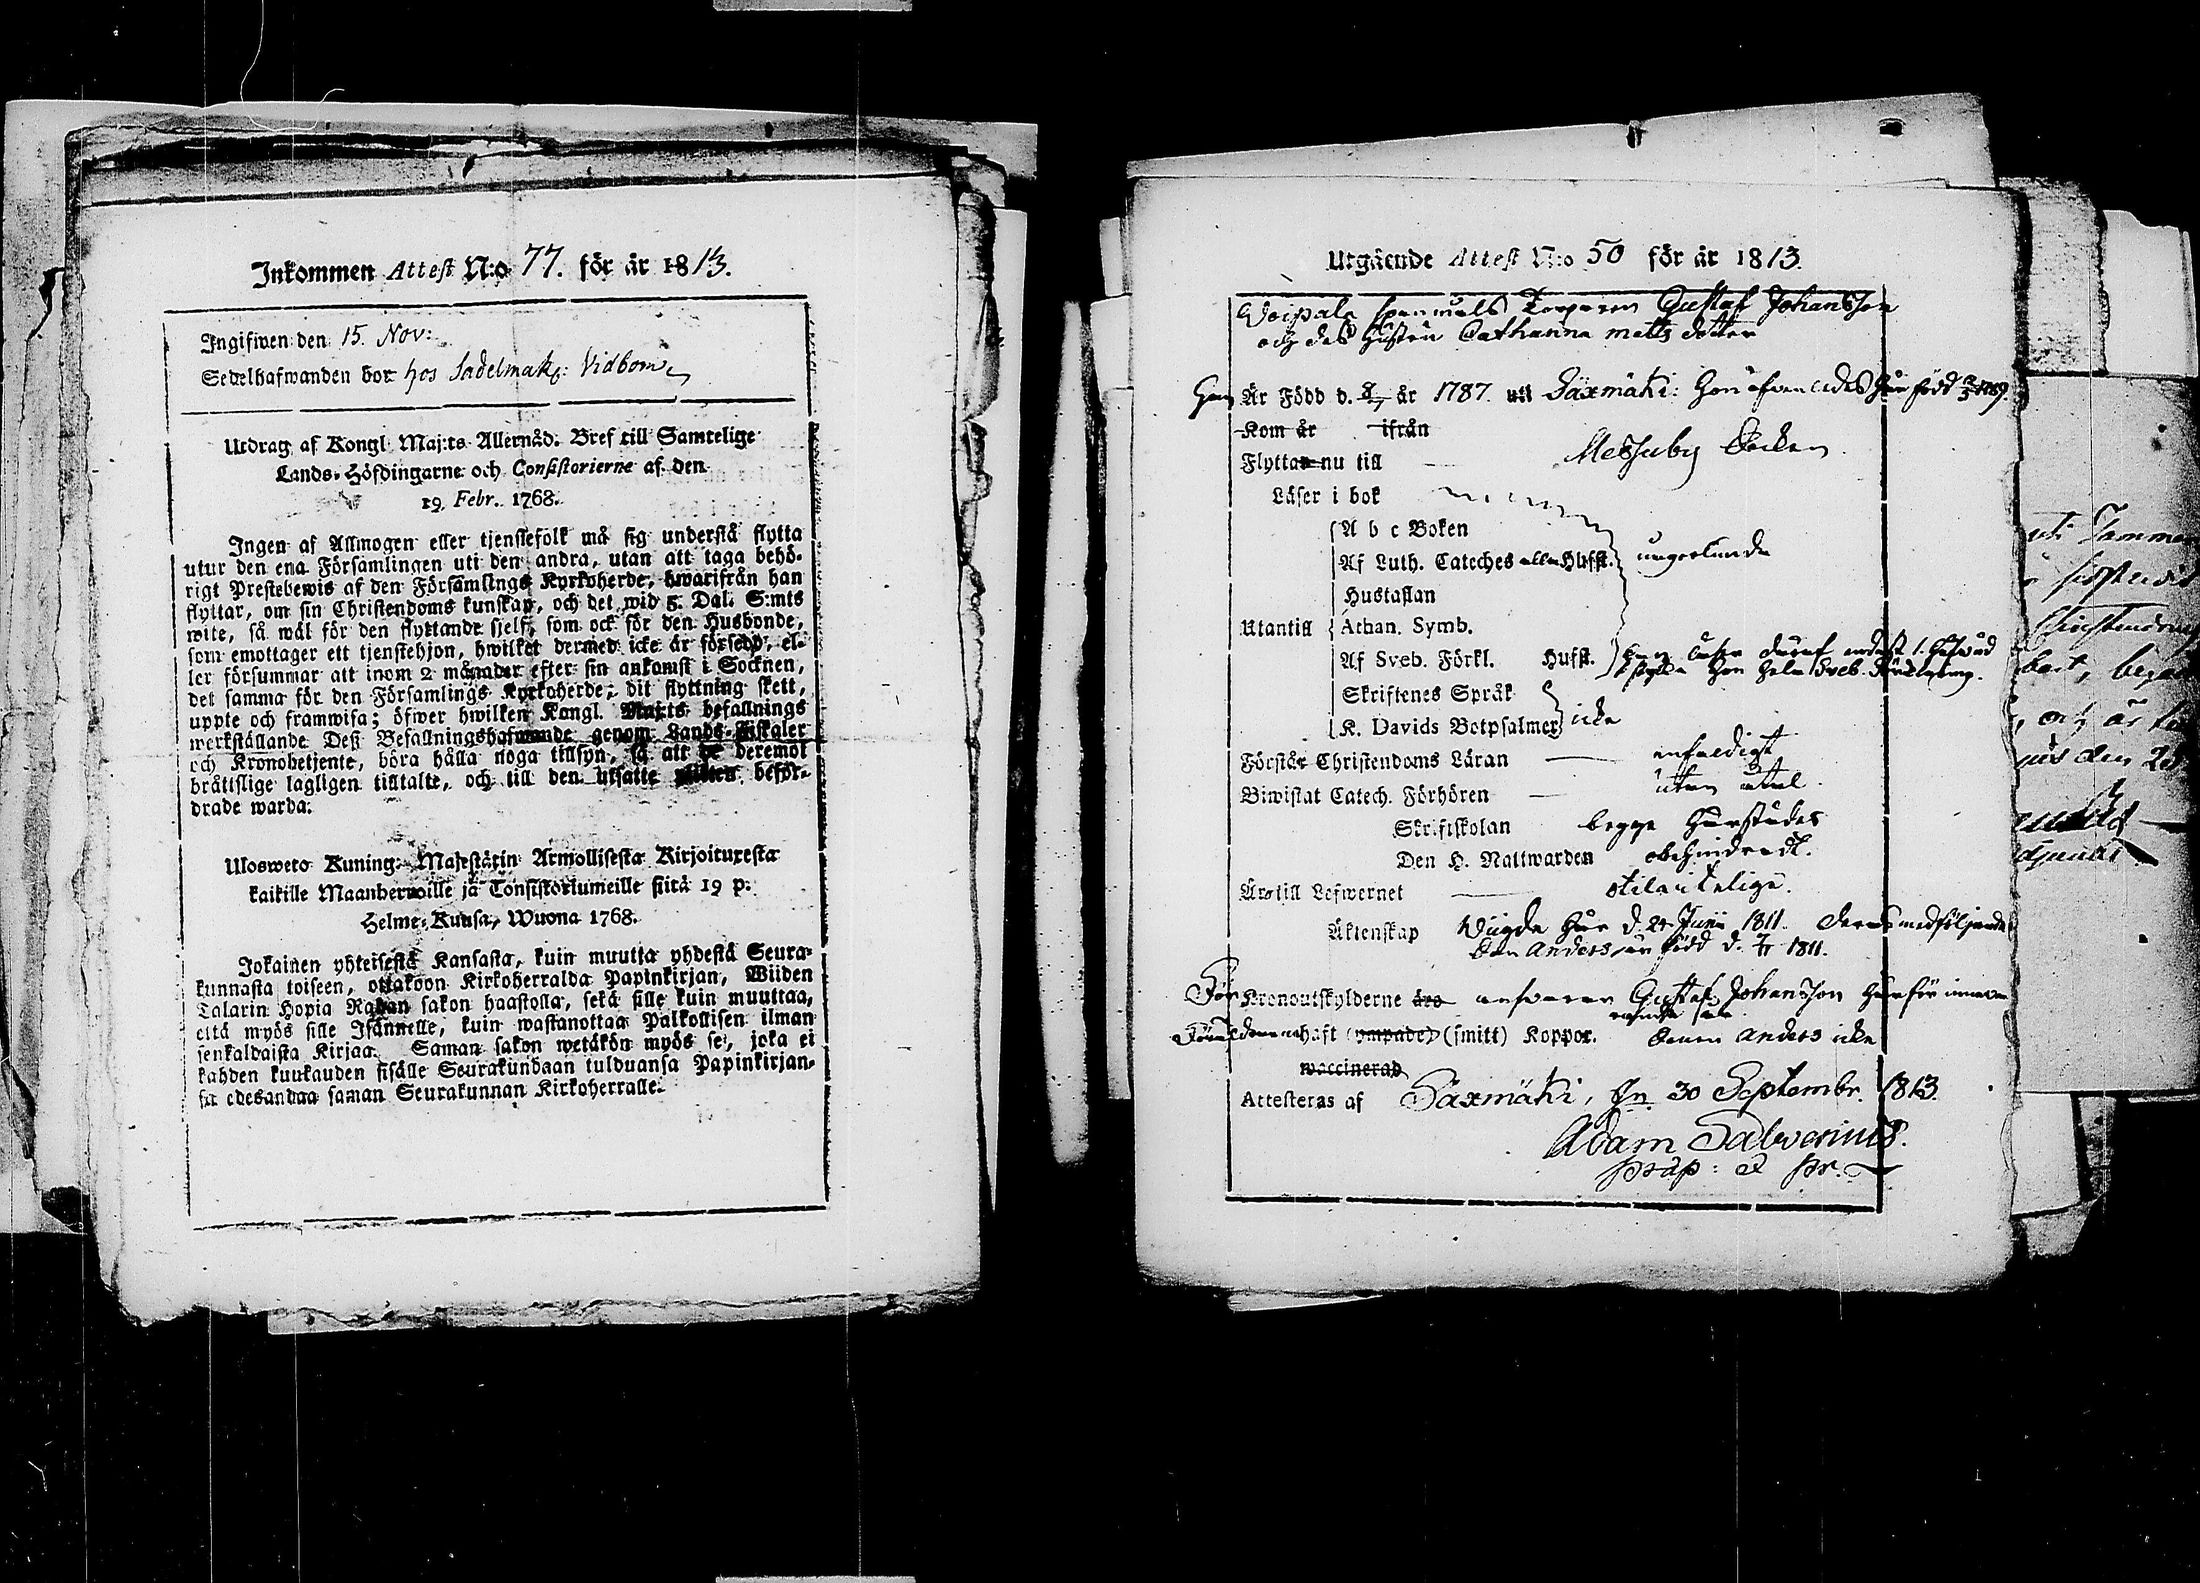 Inkommen Attest N:o 77. för år 1813.
Ingifwen den 15. Nov:
Sedelhafwanden bor hos Sadelmak: Vidbom
Utdrag af Kongl Maj:ts Allernåd. Bref till Samtelige
Lands-Höfdingarne och Consistorierne af den
19. Febr. 1768.
Ingen af Allmogen eller tjenstefolk må sig understå flytta
utur den ena Församlingen uti den andra, utan att taga behö-
rigt Prestebewis af den Församlings Kyrkoherde, hwarifrån han
flyttar, om sin Christendoms kunskap, och det wid 5. Dal. S:mts
wite, så wäl för den flyttande sjelf, som ock för den Husbonde,
som emottager ett tjenstehjon, hwilket dermed icke är försedd, el-
ler försummar att inom 2 månader efter sin ankomst i Socknen,
det samma för den Församlings Kyrkoherde, dit flyttning skett,
uppte och framwisa; öfwer hwilken Kongl. Maj:ts befallnings
werkställande Deß Befallningshafwande genom Lands-Fiskaler
och Kronobetjente, böra hålla noga tillsyn, så att de deremot
bråttslige lagligen tilltalte, och till den utsatte plikten beför-
drade warda.
Ulosweto Kuning. Majestätin Armollisesta Kirjoituxesta
kaikille Maanherroille ja Consistoriumeille siitä 19 p:
Helme-Kuusa, Wuona 1768.
Jokainen yhteisestä Kansasta, kuin muutta yhdestä Seura-
kunnasta toiseen, ottakoon Kirkoherralda Papinkirjan, Wiiden
Talarin Hopia Rahan sakon haastolla, sekä sille kuin muuttaa,
että myös sille Isännelle, kuin wastanottaa Palkollisen ilman
senkaldaista Kirjaa. Saman sakon wetäkön myös se, joka ei
kahden kuukauden sisälle Seurakundaan tulduansa Papinkirjan-
sa edesandaa saman Seurakunnan Kirkoherralle.
Utgående Attest N:o 50 för år 1813.
Torparen Gustaf Johansson
och des Hustru Catharina Matts dotter
Han Är Född d. 8/7 år 1787. uti Säxmäki: Hon
Kom år ifrån
Flyttar nu till Messuby Socken
Läser i bok
A b c Boken
Af Luth. Cateches Husfl.
Hustaflan
Utantill Athan. Symb.
Af Sveb. Förkl. Husfl. 1. hon hela Sveb. Förklaring.
Skriftenes Språk
K. Davids Botpsalmer icke
Förstår Christendoms Läran enfaldigt
Biwistat Catech. Förhören utan
Skriftskolan begge
Den H. Nattwarden obehindradt.
Äro till Lefwernet otilastelige.
Äktenskap Wigde d. 24 Junii 1811. medföljande
Son Anders är född d. 7/11 1811.
För Kronoutskylderne äro answarar Gustaf Johansson
haft (ympade) (smitt) Koppor. Sonen Anders icke
waccinerad
Attesteras af Säxmäki, d. 30 Septembr. 1813.
Adam Salwerius.
præp: & pr.